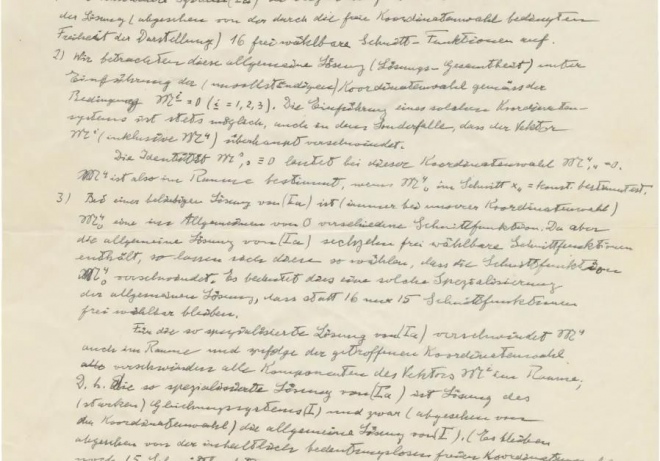 der Lösung (abgesehen von der durch die freie Koordinatenwahl bedingten
Freiheit der Darstellung) 16 frei wählbare Schnitt-Funktionen auf.
2) Wir betrachten diese allgemeine Lösung (Lösungs-Gesamtheit) unter
Einführung der (unvollständigen) Koordinatenwahl gemäss der
Bedingung 𝔐^i = 0 (i = 1, 2, 3). Die Einführung eines solchen Koordinaten-
systems ist stets möglich, auch in dem Sonderfalle, dass der Vektor
𝔐^s (inklusive 𝔐^4) überhaupt verschwindet.
Die Identität 𝔐^s,s ≡ 0 lautet bei dieser Koordinatenwahl 𝔐^4,4 = 0.
𝔐^4 ist also im Raume bestimmt, wenn 𝔐^4 im Schnitt x4 = konst. bestimmt ist.
3) Bei einer beliebigen Lösung von (Ia) ist (immer bei unserer Koordinatenwahl)
𝔐^4 eine im Allgemeinen von 0 verschiedene Schnittfunktion. Da aber
die allgemeine Lösung von (Ia) sechzehn frei wählbare Schnittfunktionen
enthält, so lassen sich diese so wählen, dass die Schnittfunktion
𝔐^4 verschwindet. Es bedeutet dies eine solche Spezialisierung
der allgemeinen Lösung, dass statt 16 nur 15 Schnittfunktionen
frei wählbar bleiben.
Für die so spezialisierte Lösung von (Ia) verschwindet 𝔐^4
auch im Raume und zufolge der getroffenen Koordinatenwahl
verschwinden alle Komponenten des Vektors 𝔐^s im Raume,
D. h. Die so spezialisierte Lösung von (Ia) ist Lösung des
(starken) Gleichungssystems (I) und zwar (abgesehen von
der Koordinatenwahl) die allgemeine Lösung von (I). (Es bleiben
abgesehen von der inhaltlich bedeutungslosen freien Koordinatenwahl
noch 15